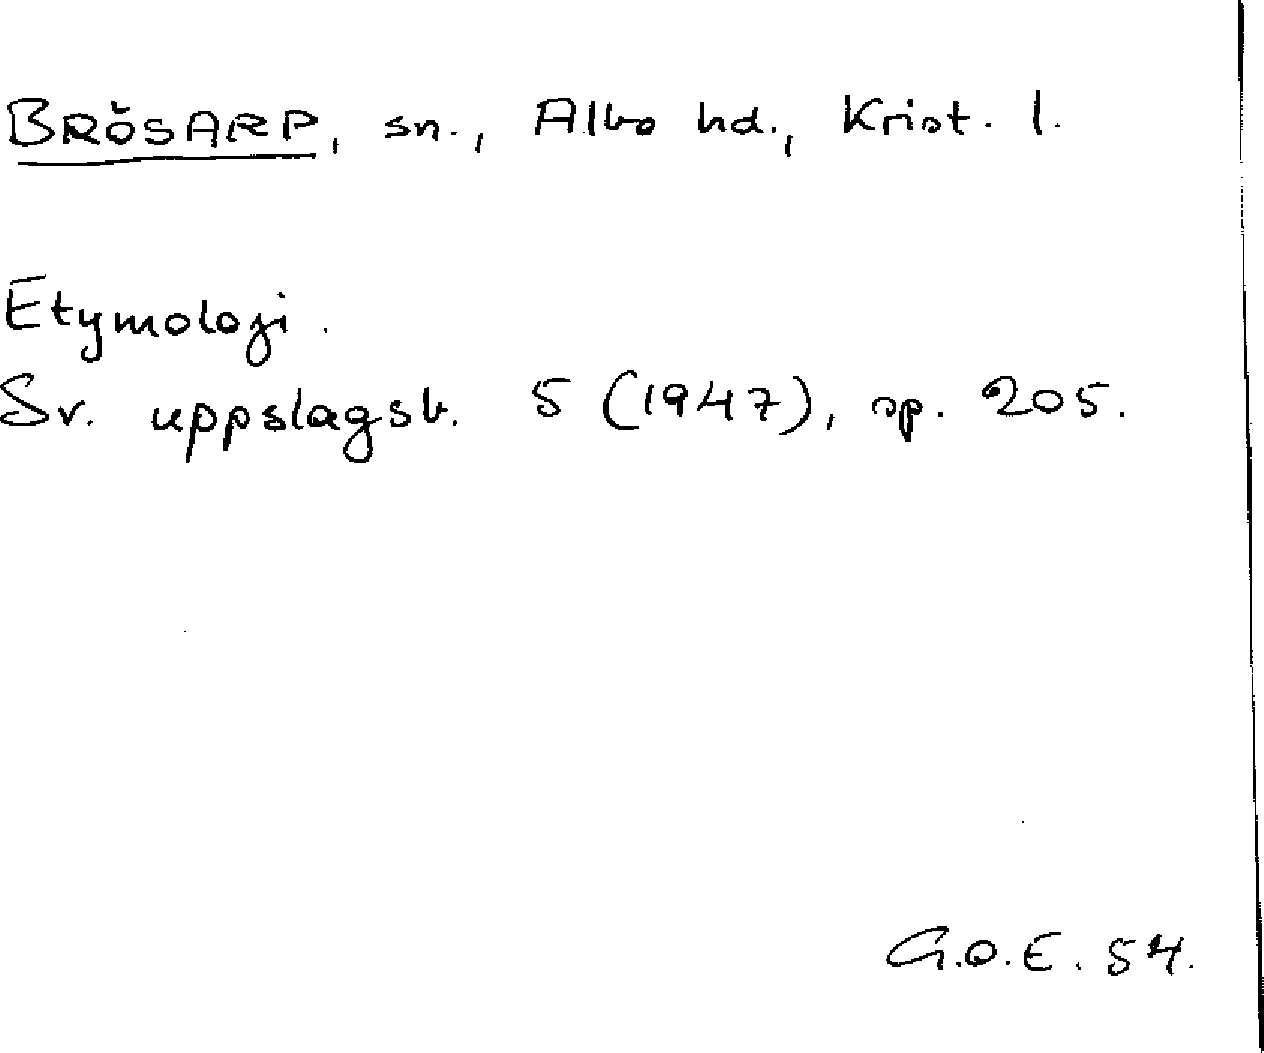 BRÖSARP, sn., Albo hd., Krist. l.
Etymologi.
Sv. uppslagsb. 5 (1947), sp. 205.
G.O.E. 54.